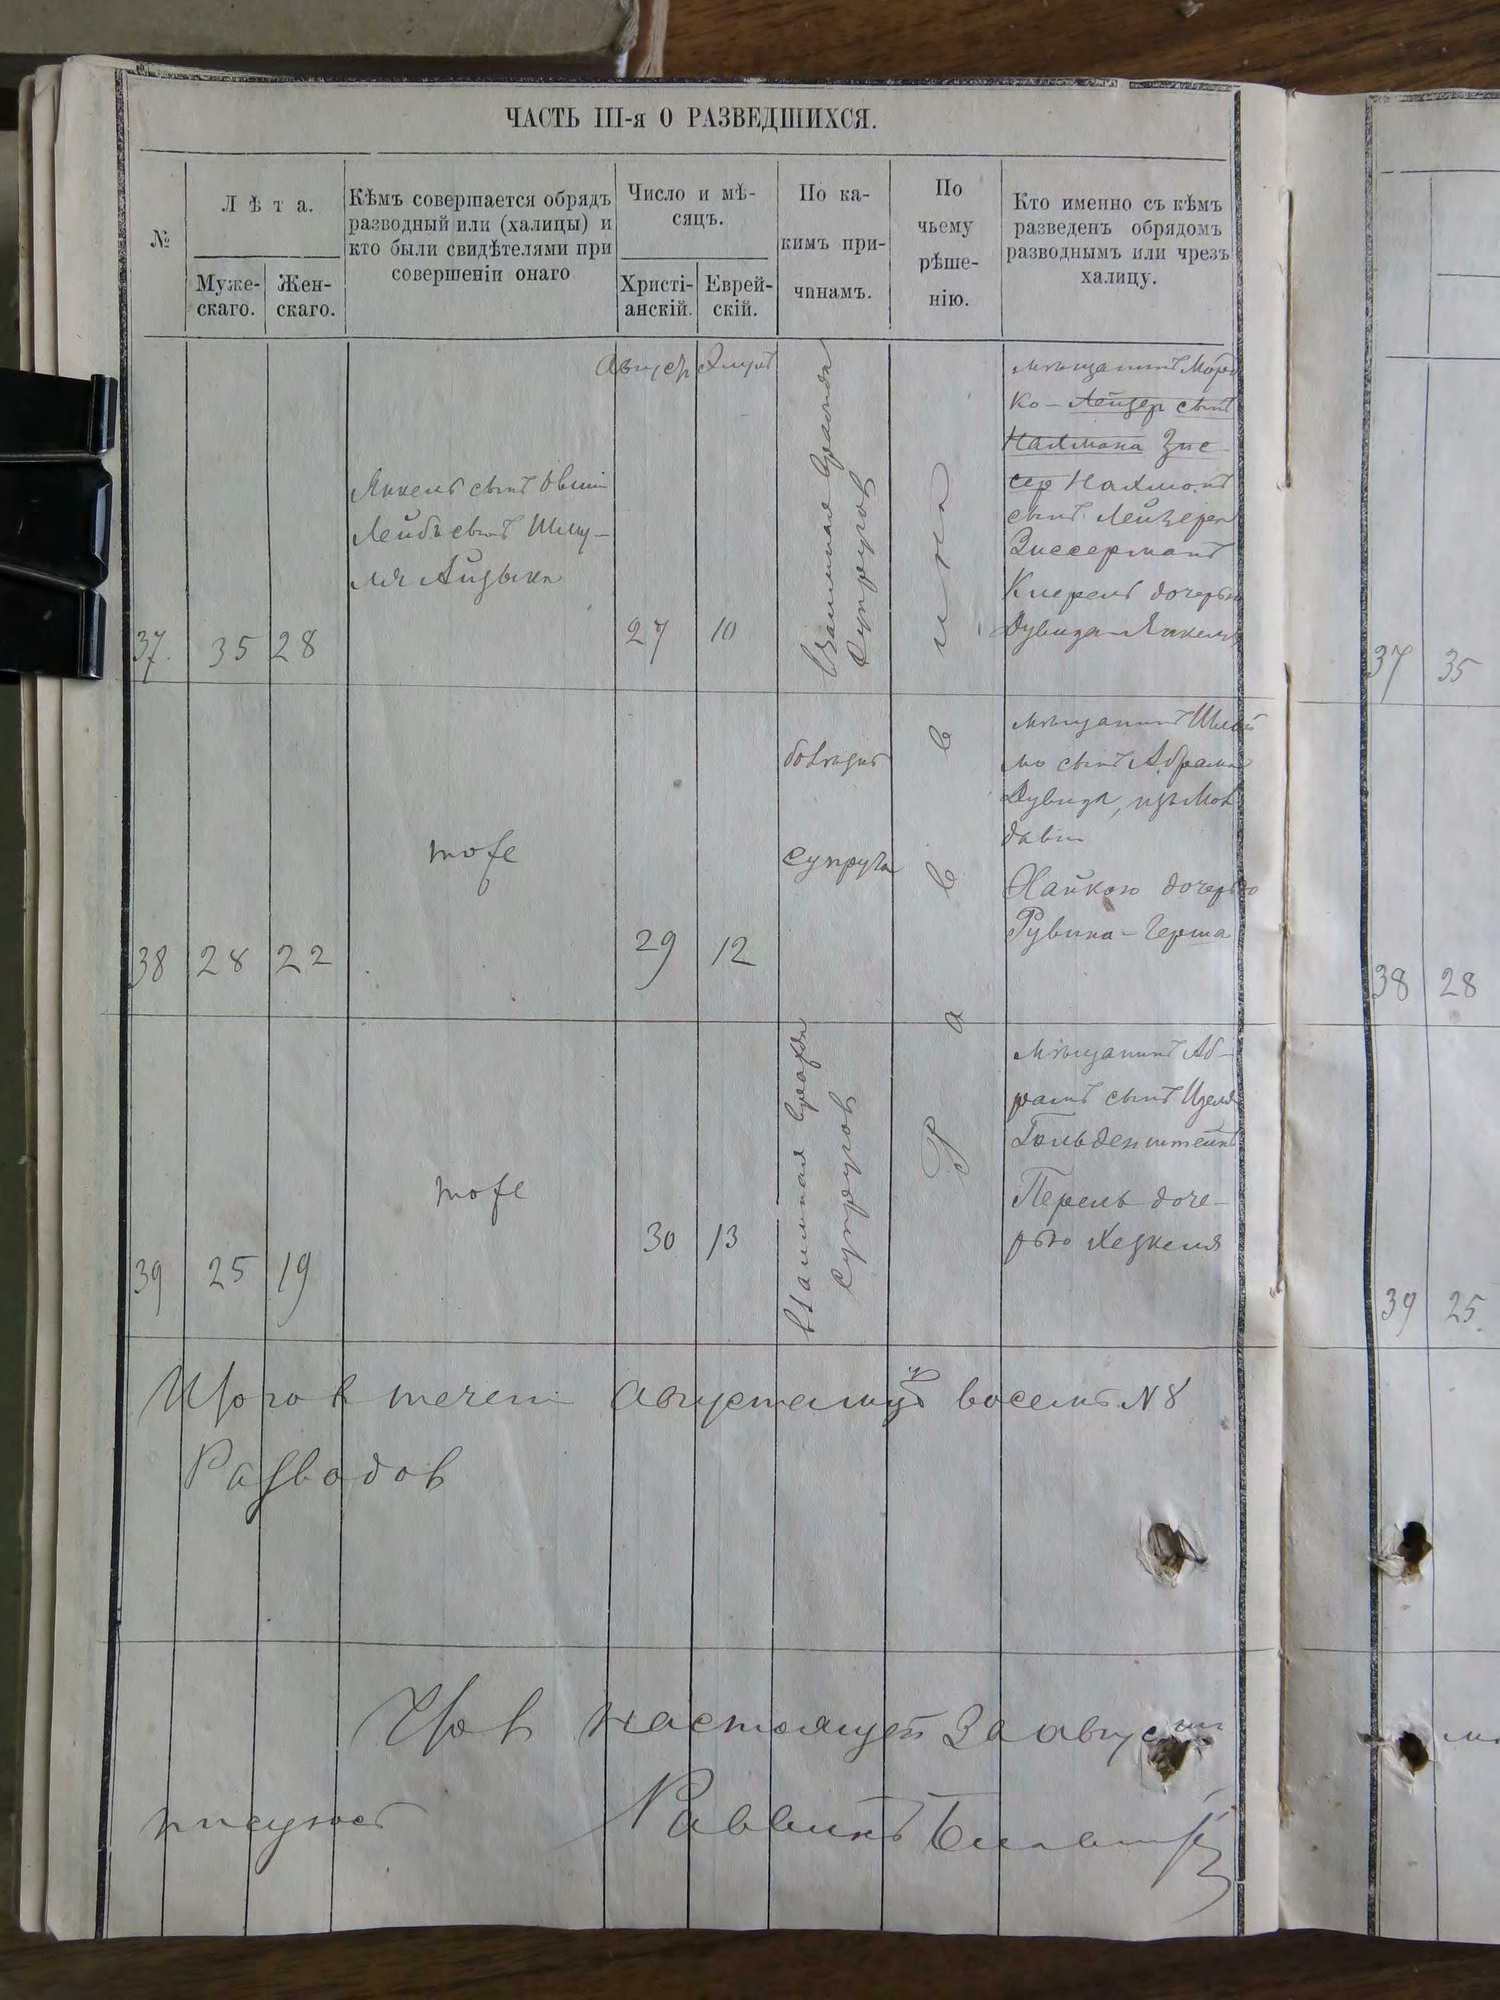 ЧАСТЬ III-я О РАЗВЕДШИХСЯ.
№
Лѣта.
Муже-
скаго.
Жен-
скаго.
Кѣмъ совершается обрядъ
разводный или (халицы) и
кто были свидѣтелями при
совершеніи онаго
Число и мѣ-
сяцъ.
Христі-
анскій.
Еврей-
скій.
По ка-
кимъ при-
чинамъ.
По
чьему
рѣше-
нію.
Кто именно съ кѣмъ
разведенъ обрядомъ
разводнымъ или чрезъ
халицу.
37.
35
28
Янкель сынъ
Лейбъ сынъ Шму-
ля
Август
27
10
Взаимная вражда
супругов
Раввина
мѣщанинъ Морд
ко - Лейзер сынъ
Нахмана Зис-
сер Нахманъ
сынъ Лейзера
Зиссерманъ
дочерью
Дувида-Янкеля
38
28
22
тоже
29
12
болѣзнь
супруга
мѣщанинъ Шлой
мо сынъ Абрама
Дувида, изъ Мол
давіи
Хайкою дочерью
Рувина-Герша
39
25
19
тоже
30
13
взаимная вражда
супругов
мѣщанинъ Аб-
рамъ сынъ Ицеля
Гольденштейнъ
Перель доче-
рью Хезкеля
Итого в течен август восемь N 8
Разводов
Что в настоящей за август
Раввинъ
37
35
38
28
39
25